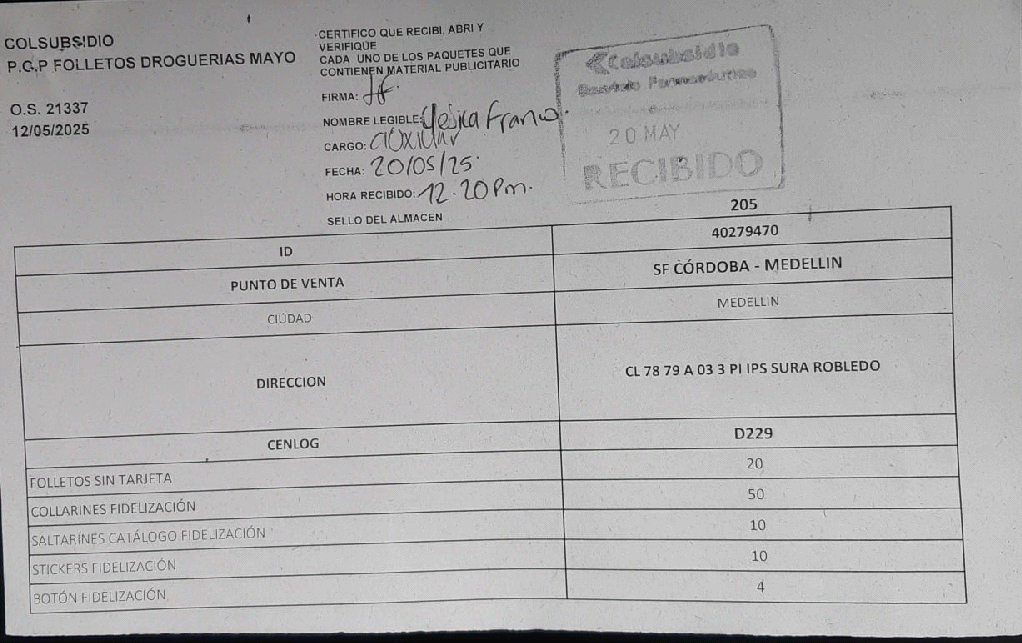 COLSUBSIDIO
P.G.P FOLLETOS DROGUERIAS MAYO
O.S. 21337
12/05/2025
CERTIFICO QUE RECIBI, ABRI Y
VERIFIQUE
CADA UNO DE LOS PAQUETES QUE
CONTIENEN MATERIAL PUBLICITARIO
FIRMA:
NOMBRE LEGIBLE: Yesica Franco.
CARGO: auxiliar
FECHA: 20/05/25.
HORA RECIBIDO: 12:20 Pm.
SELLO DEL ALMACEN
Colsubsidio
20 MAY
RECIBIDO
205
ID 40279470
PUNTO DE VENTA SF CÓRDOBA - MEDELLIN
CIUDAD MEDELLIN
DIRECCION CL 78 79 A 03 3 PI IPS SURA ROBLEDO
CENLOG D229
FOLLETOS SIN TARJETA 20
COLLARINES FIDELIZACIÓN 50
SALTARINES CATÁLOGO FIDELIZACIÓN 10
STICKERS FIDELIZACIÓN 10
BOTÓN FIDELIZACIÓN 4